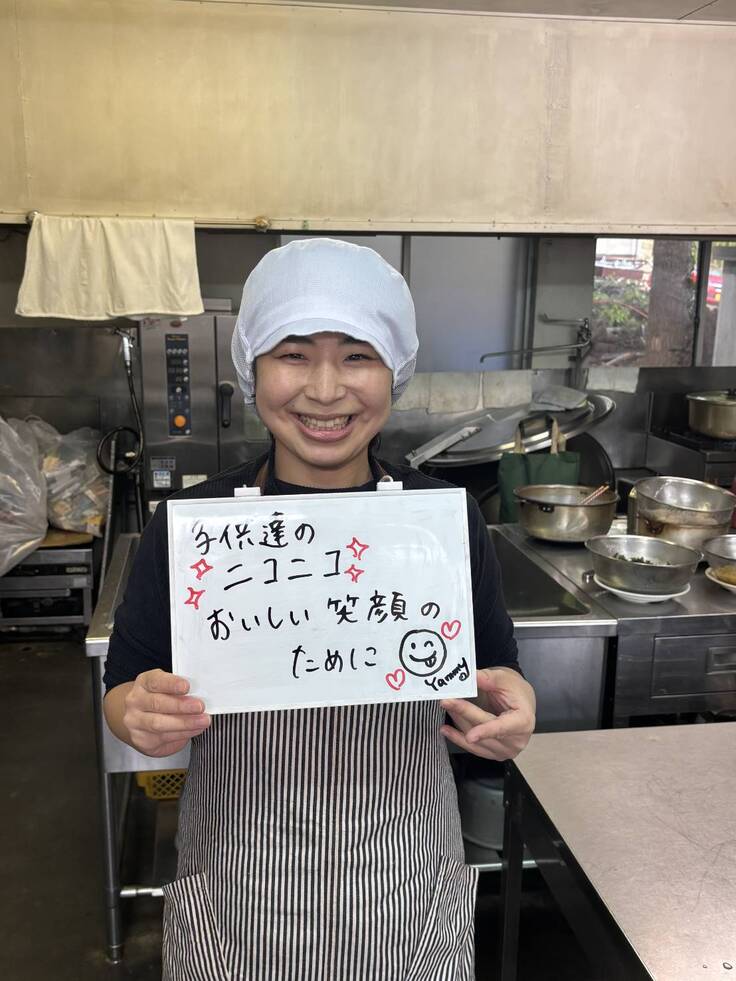 子供達の
ニコニコ
おいしい笑顔の
ために
Yammy